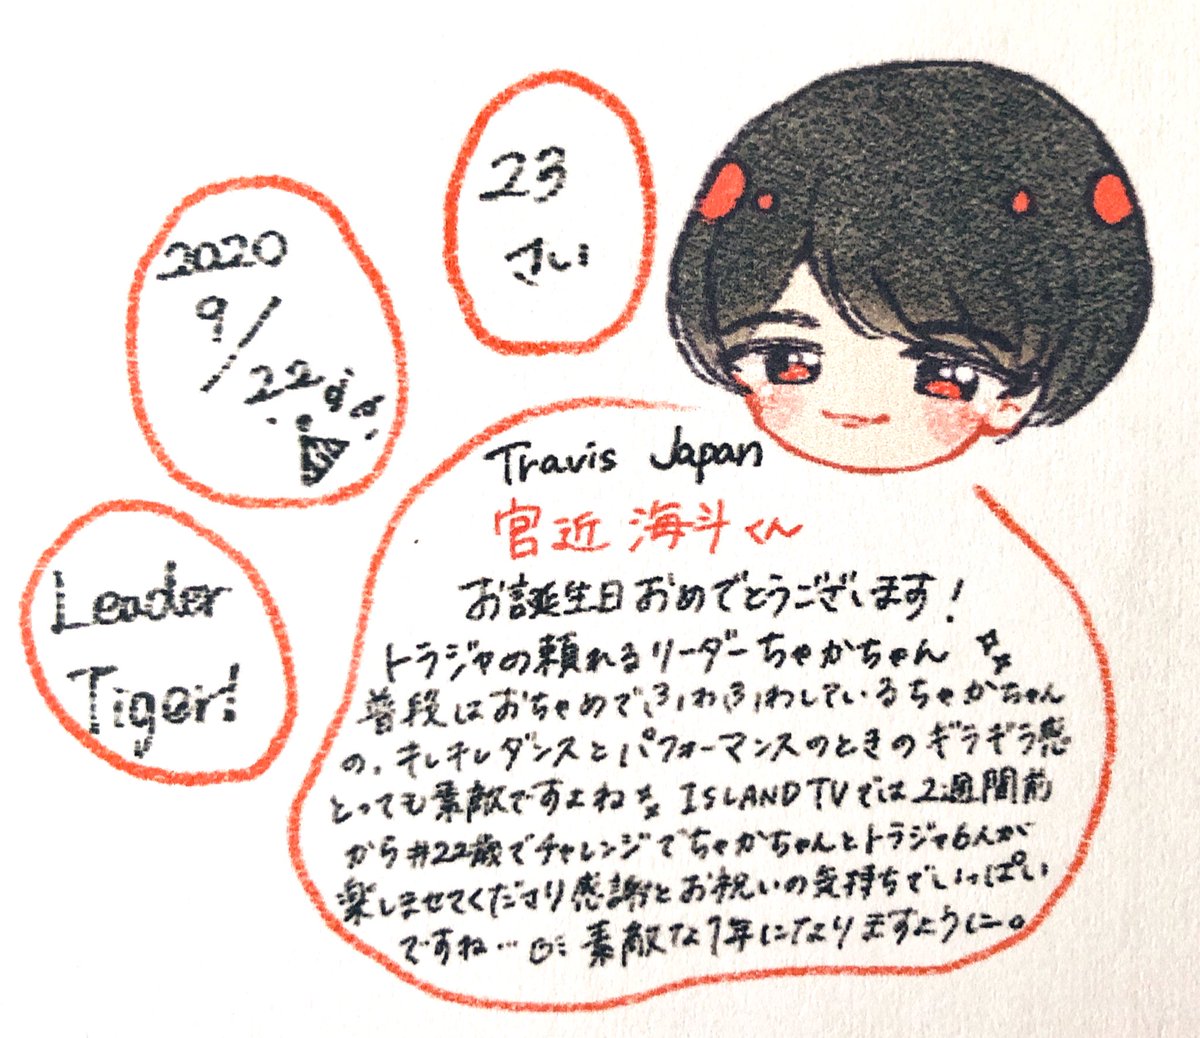 23
さい
2020
9/22
Leader
Tiger!
Travis Japan
宮近 海斗くん
お誕生日おめでとうございます!
トラジャの頼れるリーダーちゃかちゃん
普段はおちゃめでふわふわしているちゃかちゃん
の、キレキレダンスとパフォーマンスのときのギラギラ感
とっても素敵ですよね ISLAND TVでは2週間前
から#22歳でチャレンジでちゃかちゃんとトラジャ6人が
楽しませてくださり感謝とお祝いの気持ちでいっぱい
ですね… 素敵な1年になりますように。